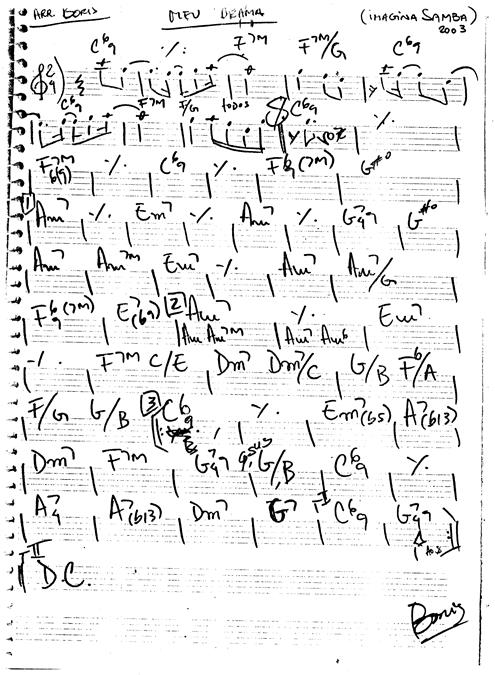 ARR. BORIS MEU DRAMA (IMAGINA SAMBA)
2003
C6/9 ٪. F7M F7M/G C6/9
C6/9 F7M F/G todos C6/9 ٪.
VOZ
F7M ٪. C6/9 ٪. G#º
6(9)
1 Am7 ٪. Em7 ٪. Am7 ٪. G7/4 9 G#º
Am7 Am7M Em7 ٪. Am7 Am7/G
F6/9(7M) E7(b9) 2 Am7 ٪. Em7
Am Am7M Am7 Am6
٪. F7M C/E Dm7 Dm7/C G/B F6/A
F/G G/B 3 C6/9 ٪. Em7(b5) A7(b13)
Dm7 F7M G7/4 9 G/B C6/9 ٪.
A7/4 A7(b13) Dm7 G7 I C6/9 G7/4 9
II
D.C.
Boris